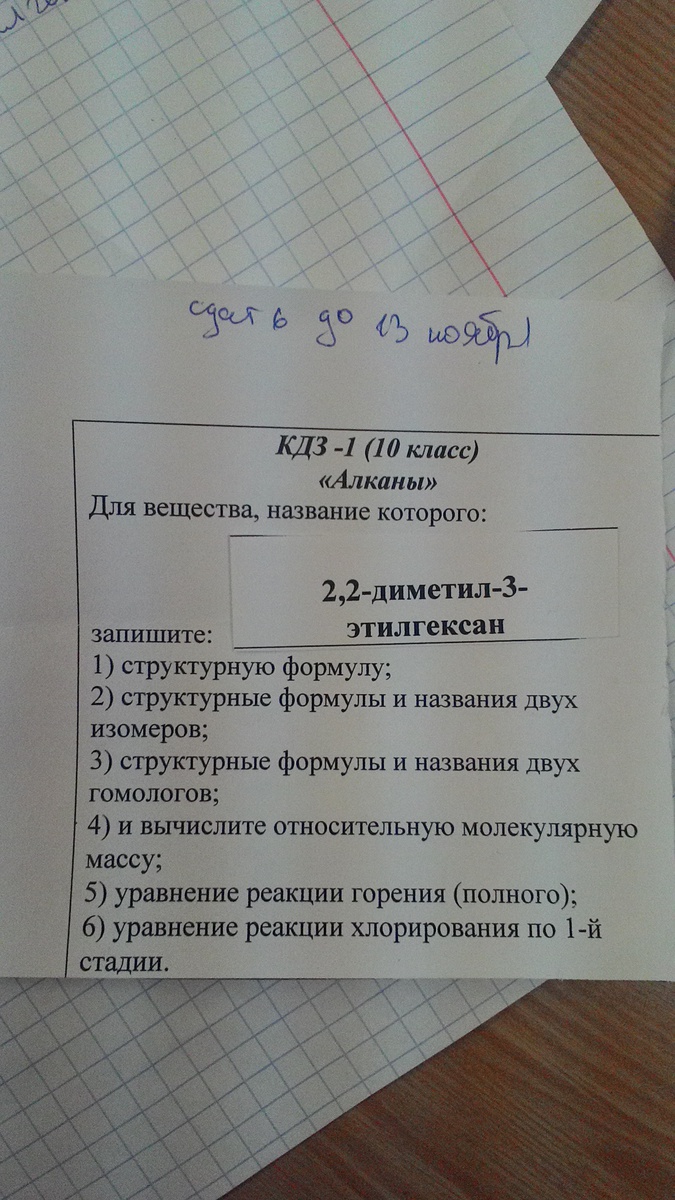 сдать до 13 ноября
КДЗ -1 (10 класс)
«Алканы»
Для вещества, название которого:
2,2-диметил-3-
этилгексан
запишите:
1) структурную формулу;
2) структурные формулы и названия двух
изомеров;
3) структурные формулы и названия двух
гомологов;
4) и вычислите относительную молекулярную
массу;
5) уравнение реакции горения (полного);
6) уравнение реакции хлорирования по 1-й
стадии.